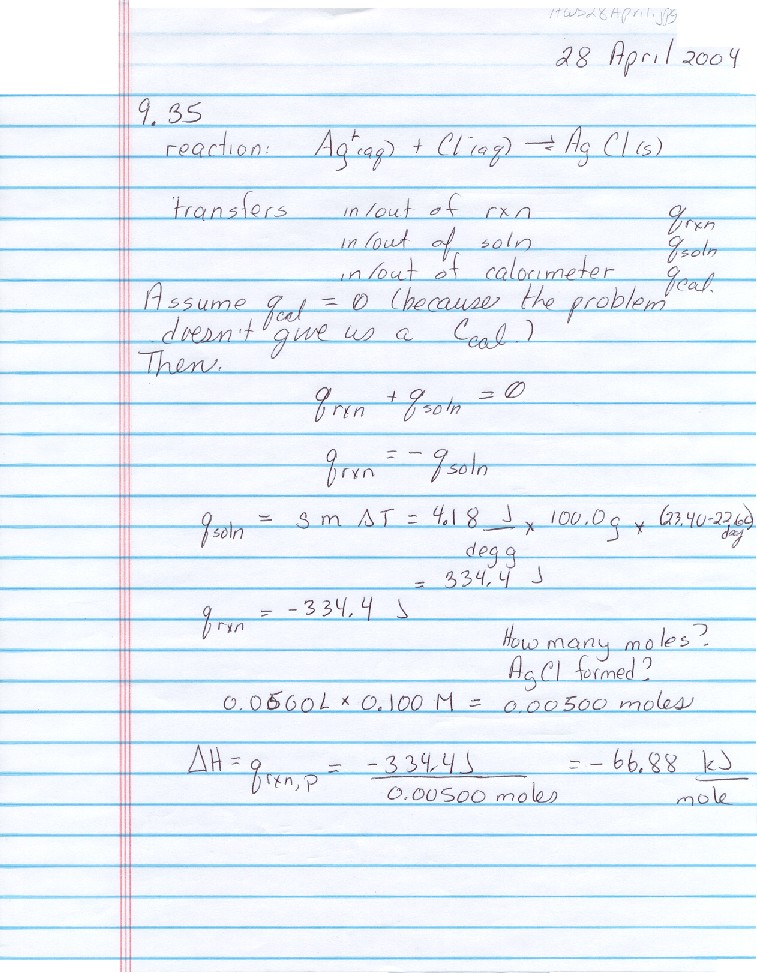 HW28April.jpg
28 April 2004
9.35
reaction: Ag⁺(aq) + Cl⁻(aq) ⇌ AgCl(s)
transfers in/out of rxn q_rxn
in/out of soln q_soln
in/out of calorimeter q_cal.
Assume q_cal = 0 (because the problem
doesn't give us a C_cal.)
Then.
q_rxn + q_soln = 0
q_rxn = - q_soln
q_soln = s m ΔT = 4.18 J/deg g × 100.0 g × (23.40-22.60) deg
= 334.4 J
q_rxn = -334.4 J
How many moles?
AgCl formed?
0.0500L × 0.100 M = 0.00500 moles
ΔH = q_rxn,p = -334.4 J / 0.00500 moles = -66.88 kJ/mole